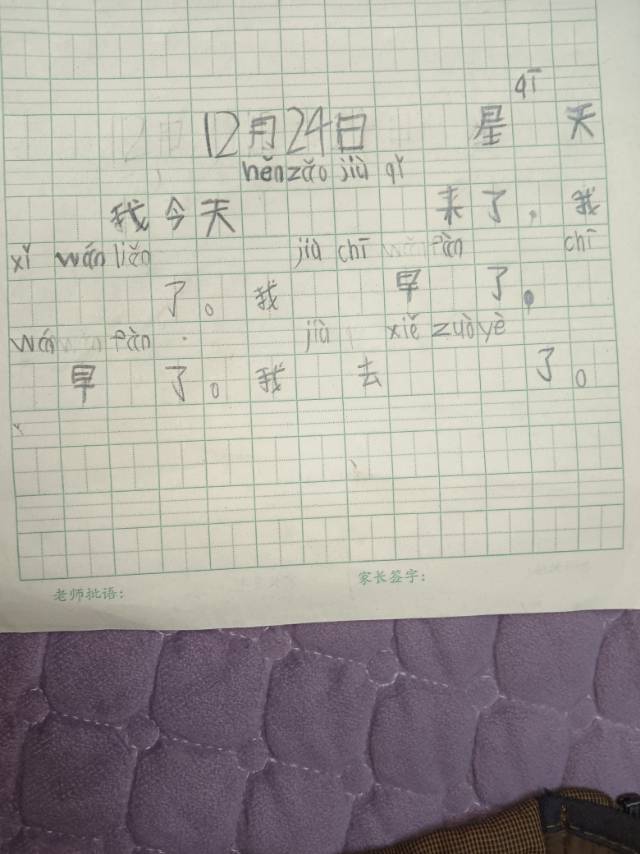 qī
12月24日 星 天
hěn zǎo jiù qǐ
我今天 来了，我
xǐ wán liǎn jiù chī pàn chī
了。我 早 了，
wán pàn jiù xiě zuò yè
早 了。我 去 了。
老师批语： 家长签字：